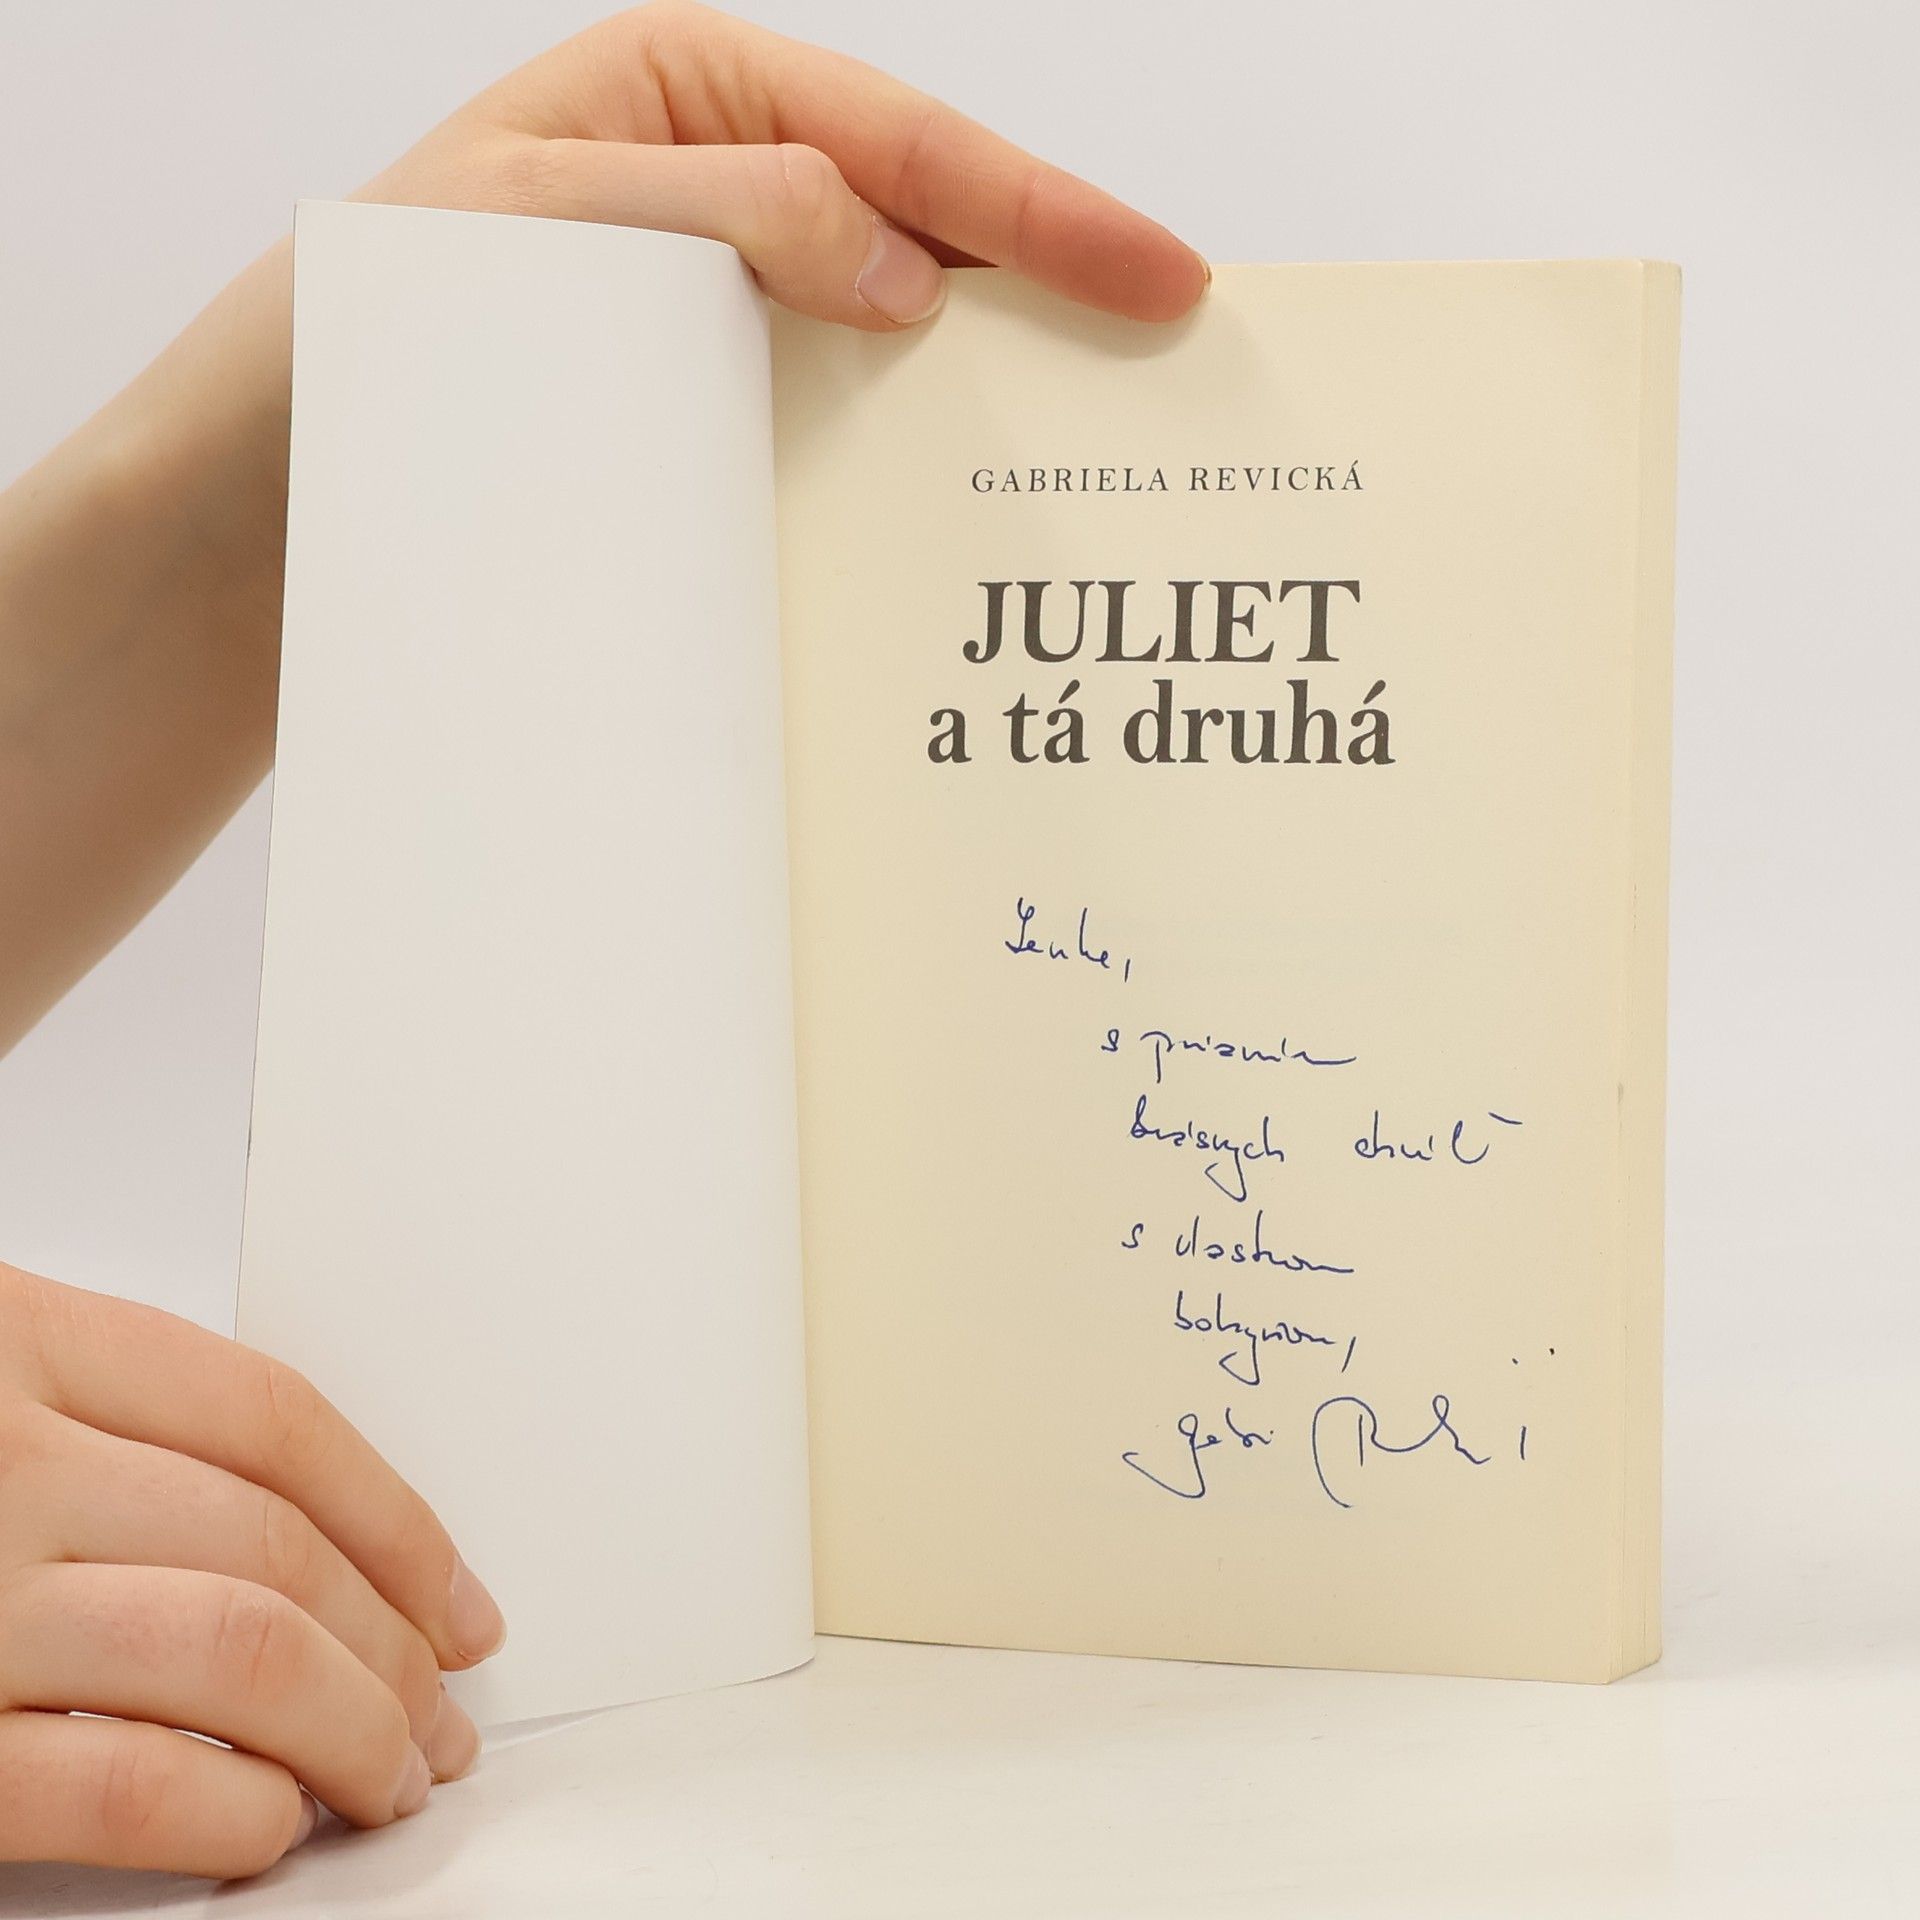 GABRIELA REVICKÁ
JULIET
a tá druhá
Lenke,
s prianím
krásnych chvíľ
s vlastnou
bohyňou,
Gabi R